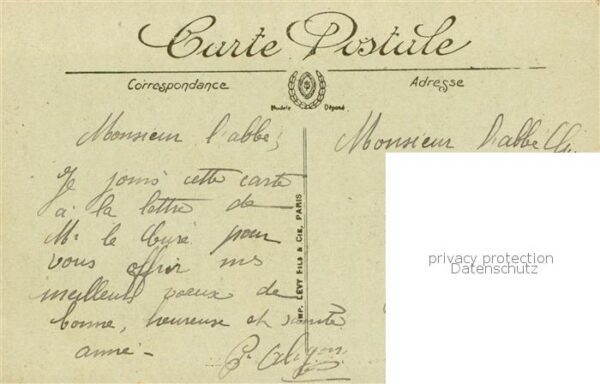 Carte Postale
Correspondance
Adresse
Modèle Déposé
Monsieur l'abbé,
Je joins cette carte
à la lettre de
Mr le Curé pour
vous offrir mes
meilleurs voeux de
bonne, heureuse et sainte
année -
IMP. LEVY FILS & CIE, PARIS
Monsieur l'abbé
privacy protection
Datenschutz